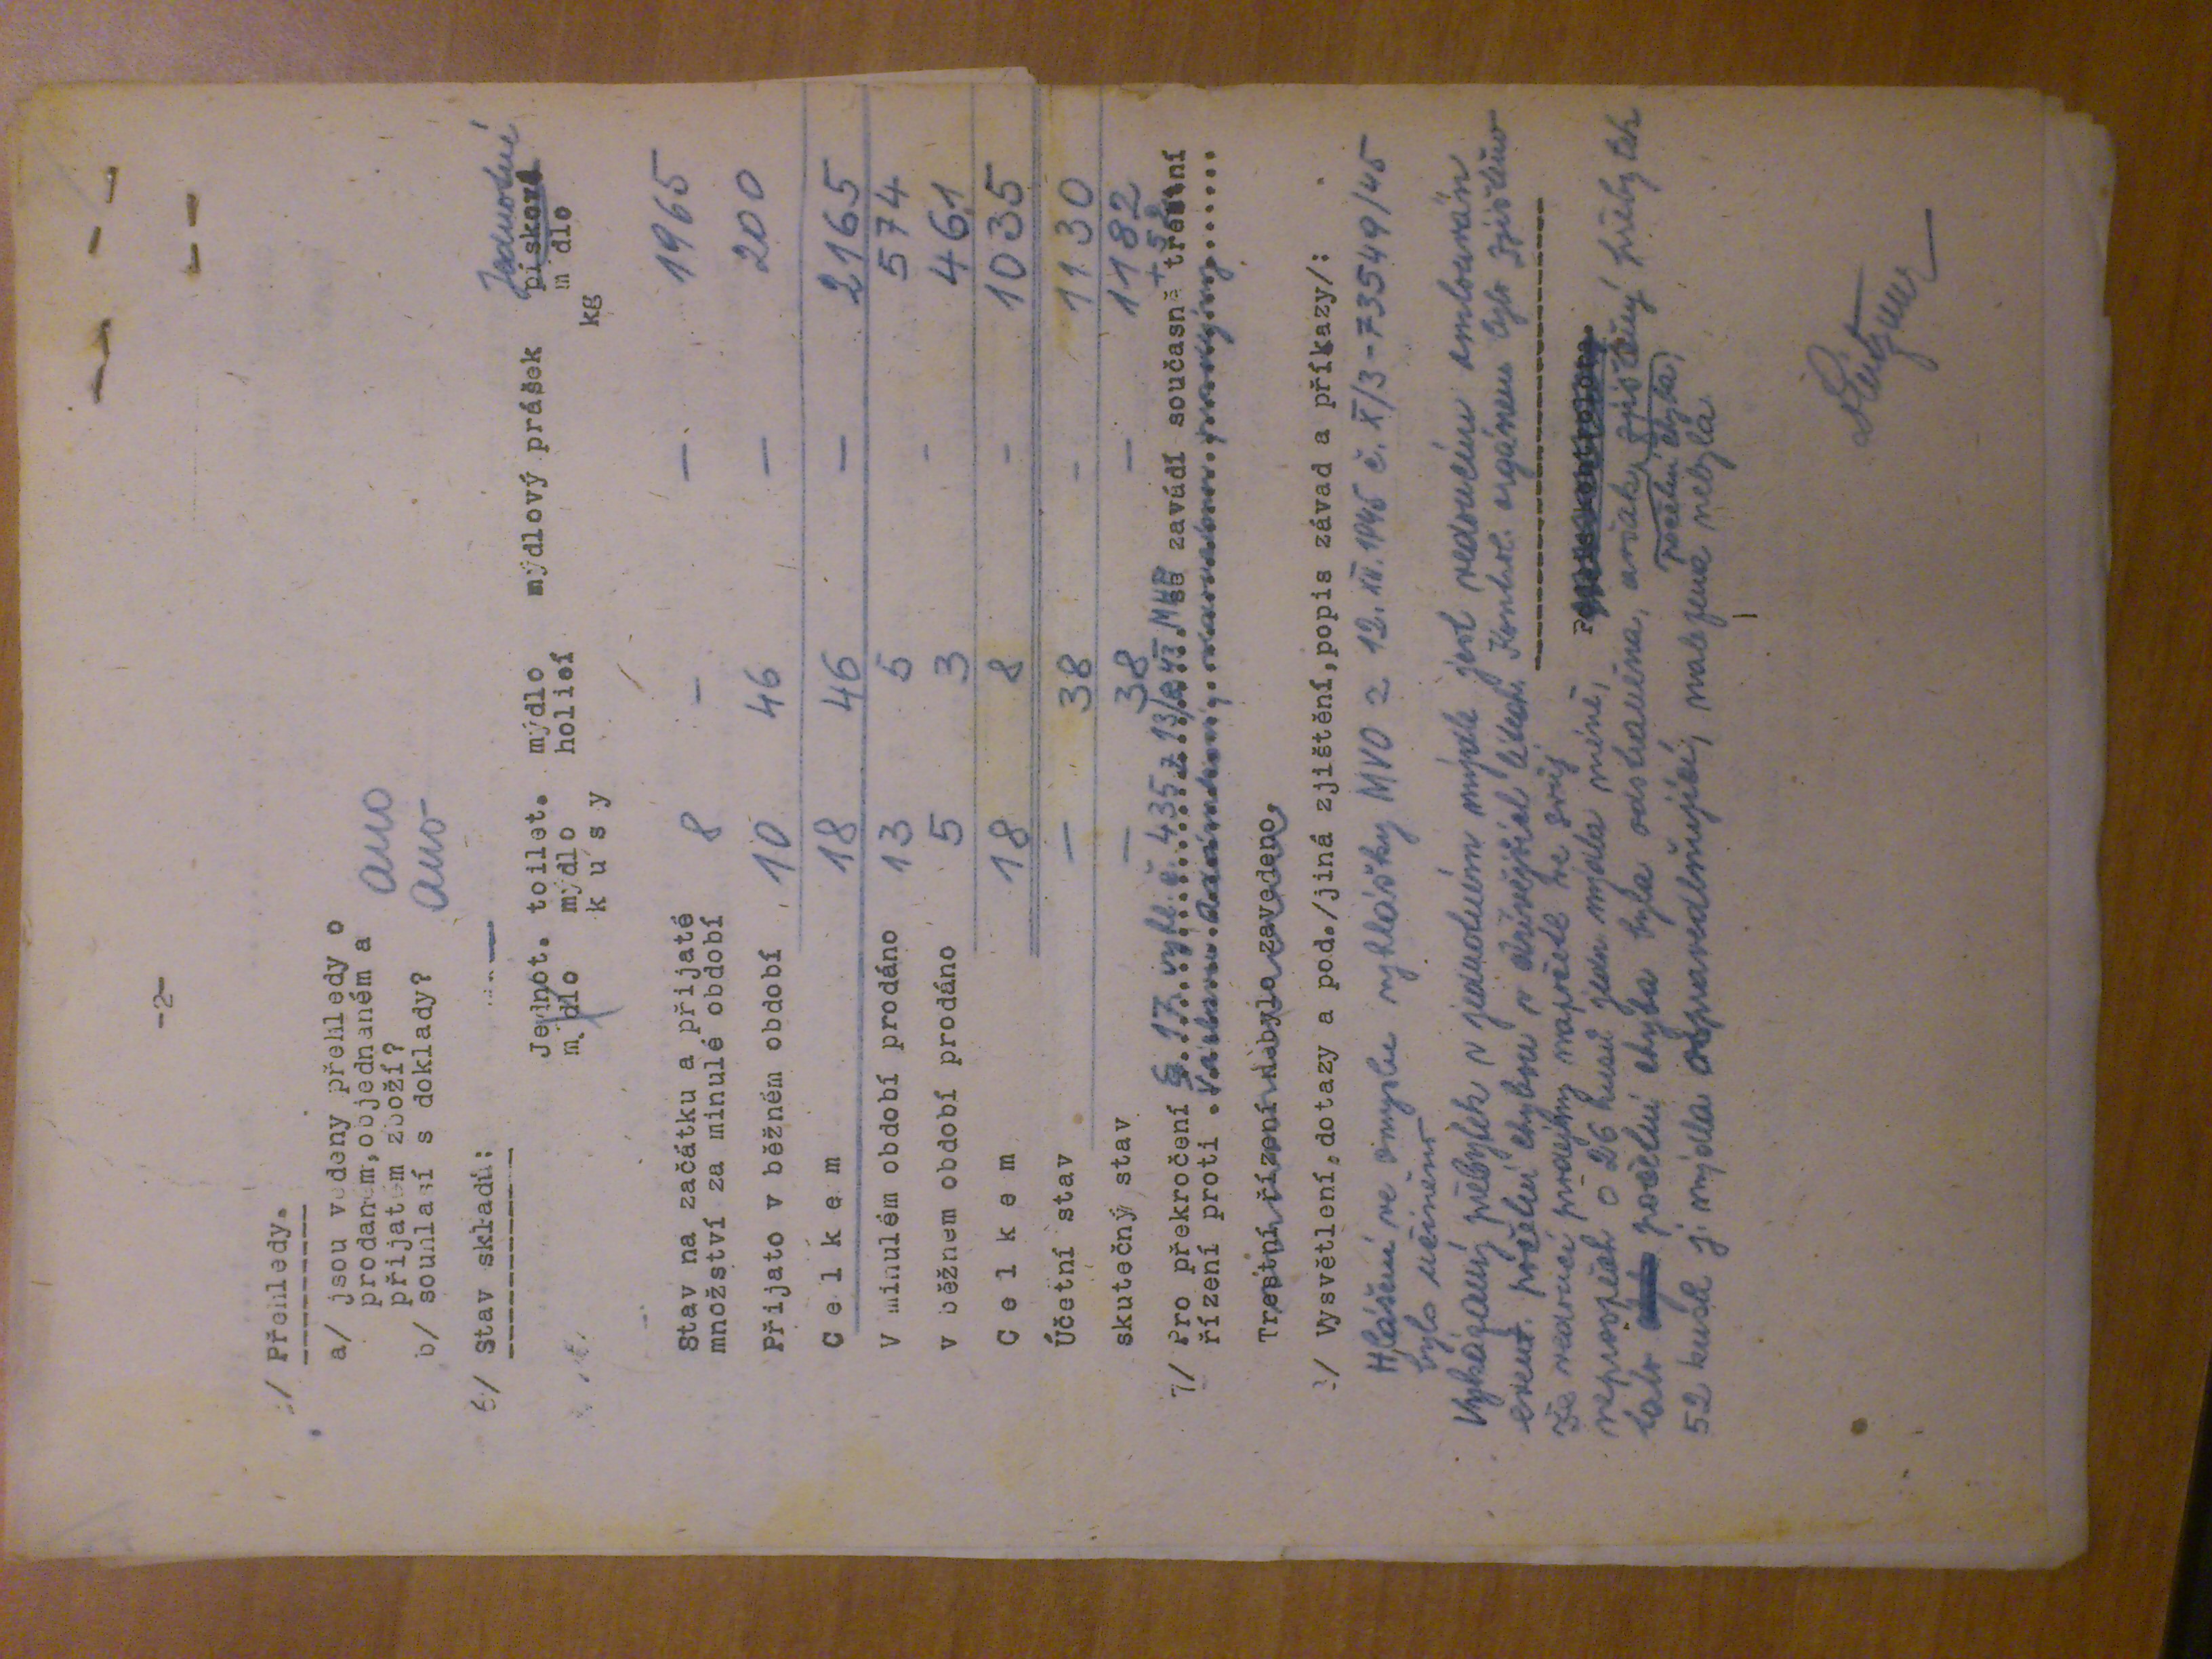 -2-
/ Přehledy.
a/ jsou vedeny přehledy o
prodaném,objednaném a
přijatém zboží? ano
b/ souhlasí s doklady? ano
6/ Stav skladů:
Jednotné
Jednot. toilet. mýdlo mýdlový prášek písková
mýdlo mýdlo holicí mýdlo
k u s y kg
Stav na začátku a přijaté
množství za minulé období 8 - - 1965
Přijato v běžném období 10 46 - 200
C e l k e m 18 46 - 2165
V minulém období prodáno 13 5 574
v běžném období prodáno 5 3 - 461
C e l k e m 18 8 - 1035
Účetní stav - 38 - 1130
skutečný stav - 38 - 1182
+ 52
7/ Pro překročení § 17 vyhl. č. 435 z se zavádí současně trestní
řízení proti Václavu prodejny
Trestní řízení nebylo zavedeno.
8/ Vysvětlení,dotazy a pod./jiná zjištění,popis závad a příkazy/:
Hlášení ve smyslu vyhlášky MVO z 12. XII. 1945 č. X/3-73549/45
bylo učiněno
Vykázaný přebytek v jednotném mýdle jest vedoucím omlouván
event. početní chybou v dřívějších létech. Kontrol. orgánem bylo zjištěno
že vedoucí prodejny napočetl ve svůj
neprospěch o 26 kusů jedn. mýdla méně, Podpis kontrolora.
tato početní chyba byla odstraněna, avšak zjištěný přebytek
početní chyba,
52 kusů j. mýdla ospravedlňující, nalezena nebyla.